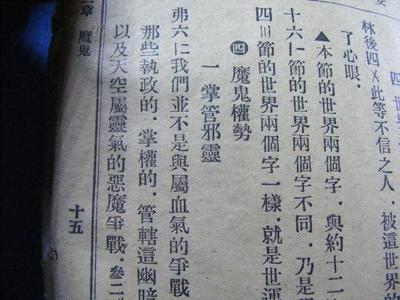 林後四〤此等不信之人，被這世界
了心眼．
▲本節的世界兩個字．與約十二
十六〡一節的世界兩個字不同．乃是
四〣節的世界兩個字一樣．就是世
㊃ 魔鬼權勢
一 掌管邪靈
弗六〡二我們並不是與屬血氣的爭戰
那些執政的．掌權的．管轄這幽暗
以及天空屬靈氣的惡魔爭戰．參二
章 魔鬼
十五